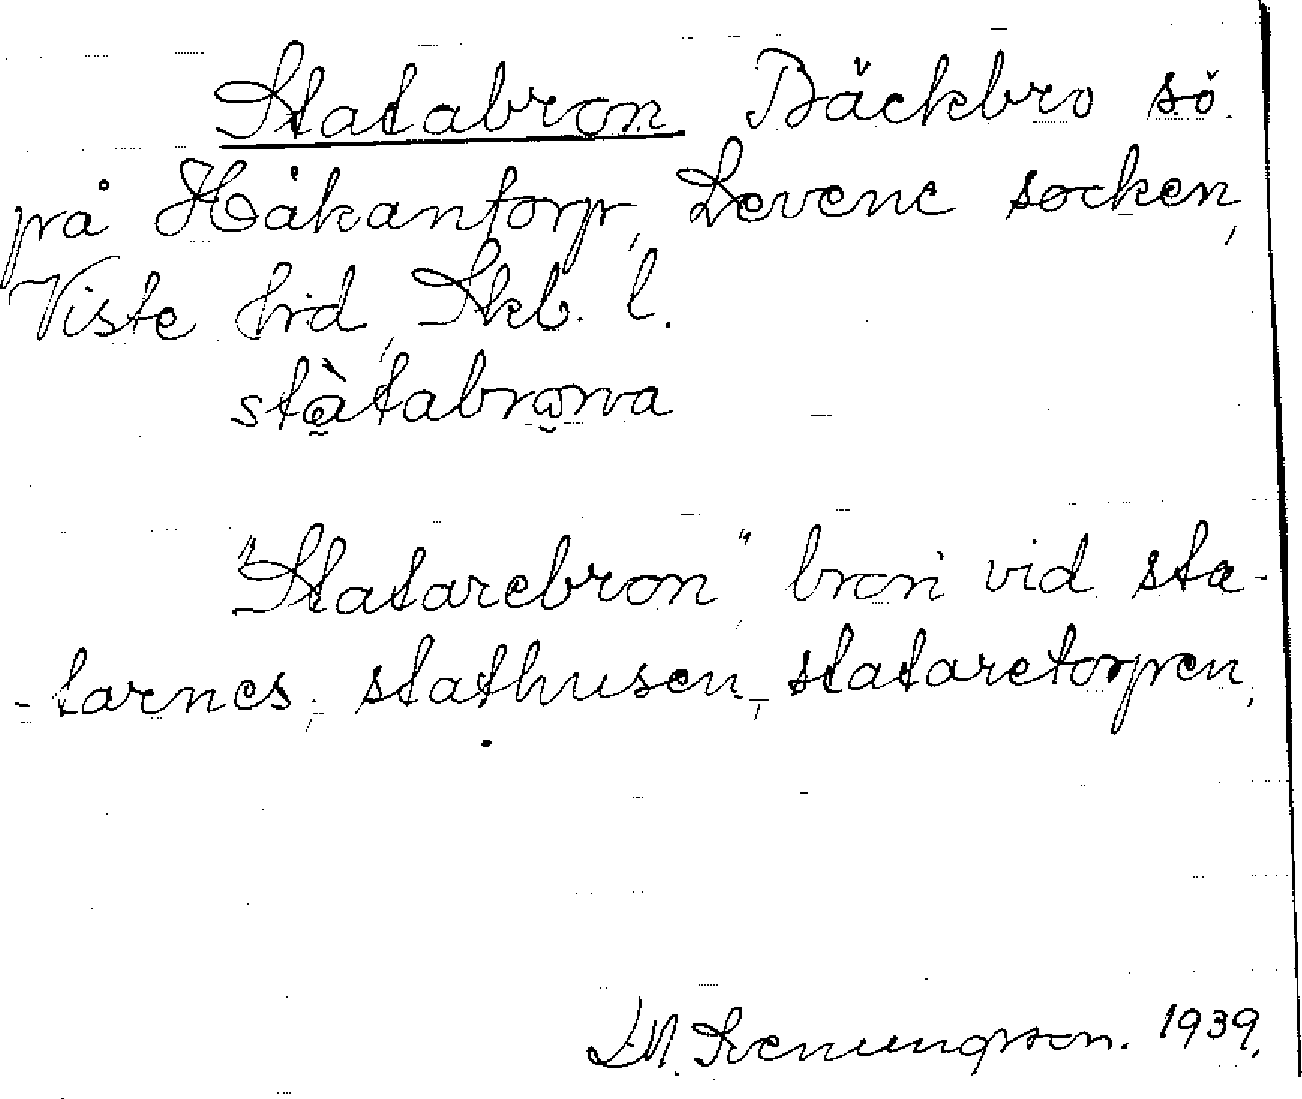 Statabron Bäckbro sö.
på Håkantorp, Levene socken,
Viste hrd, Skb. l.
stàtabrona
"Statarebron", bron vid sta-
-tarnes, stathusen, stataretorpen,
D.N. Svenungsson. 1939.